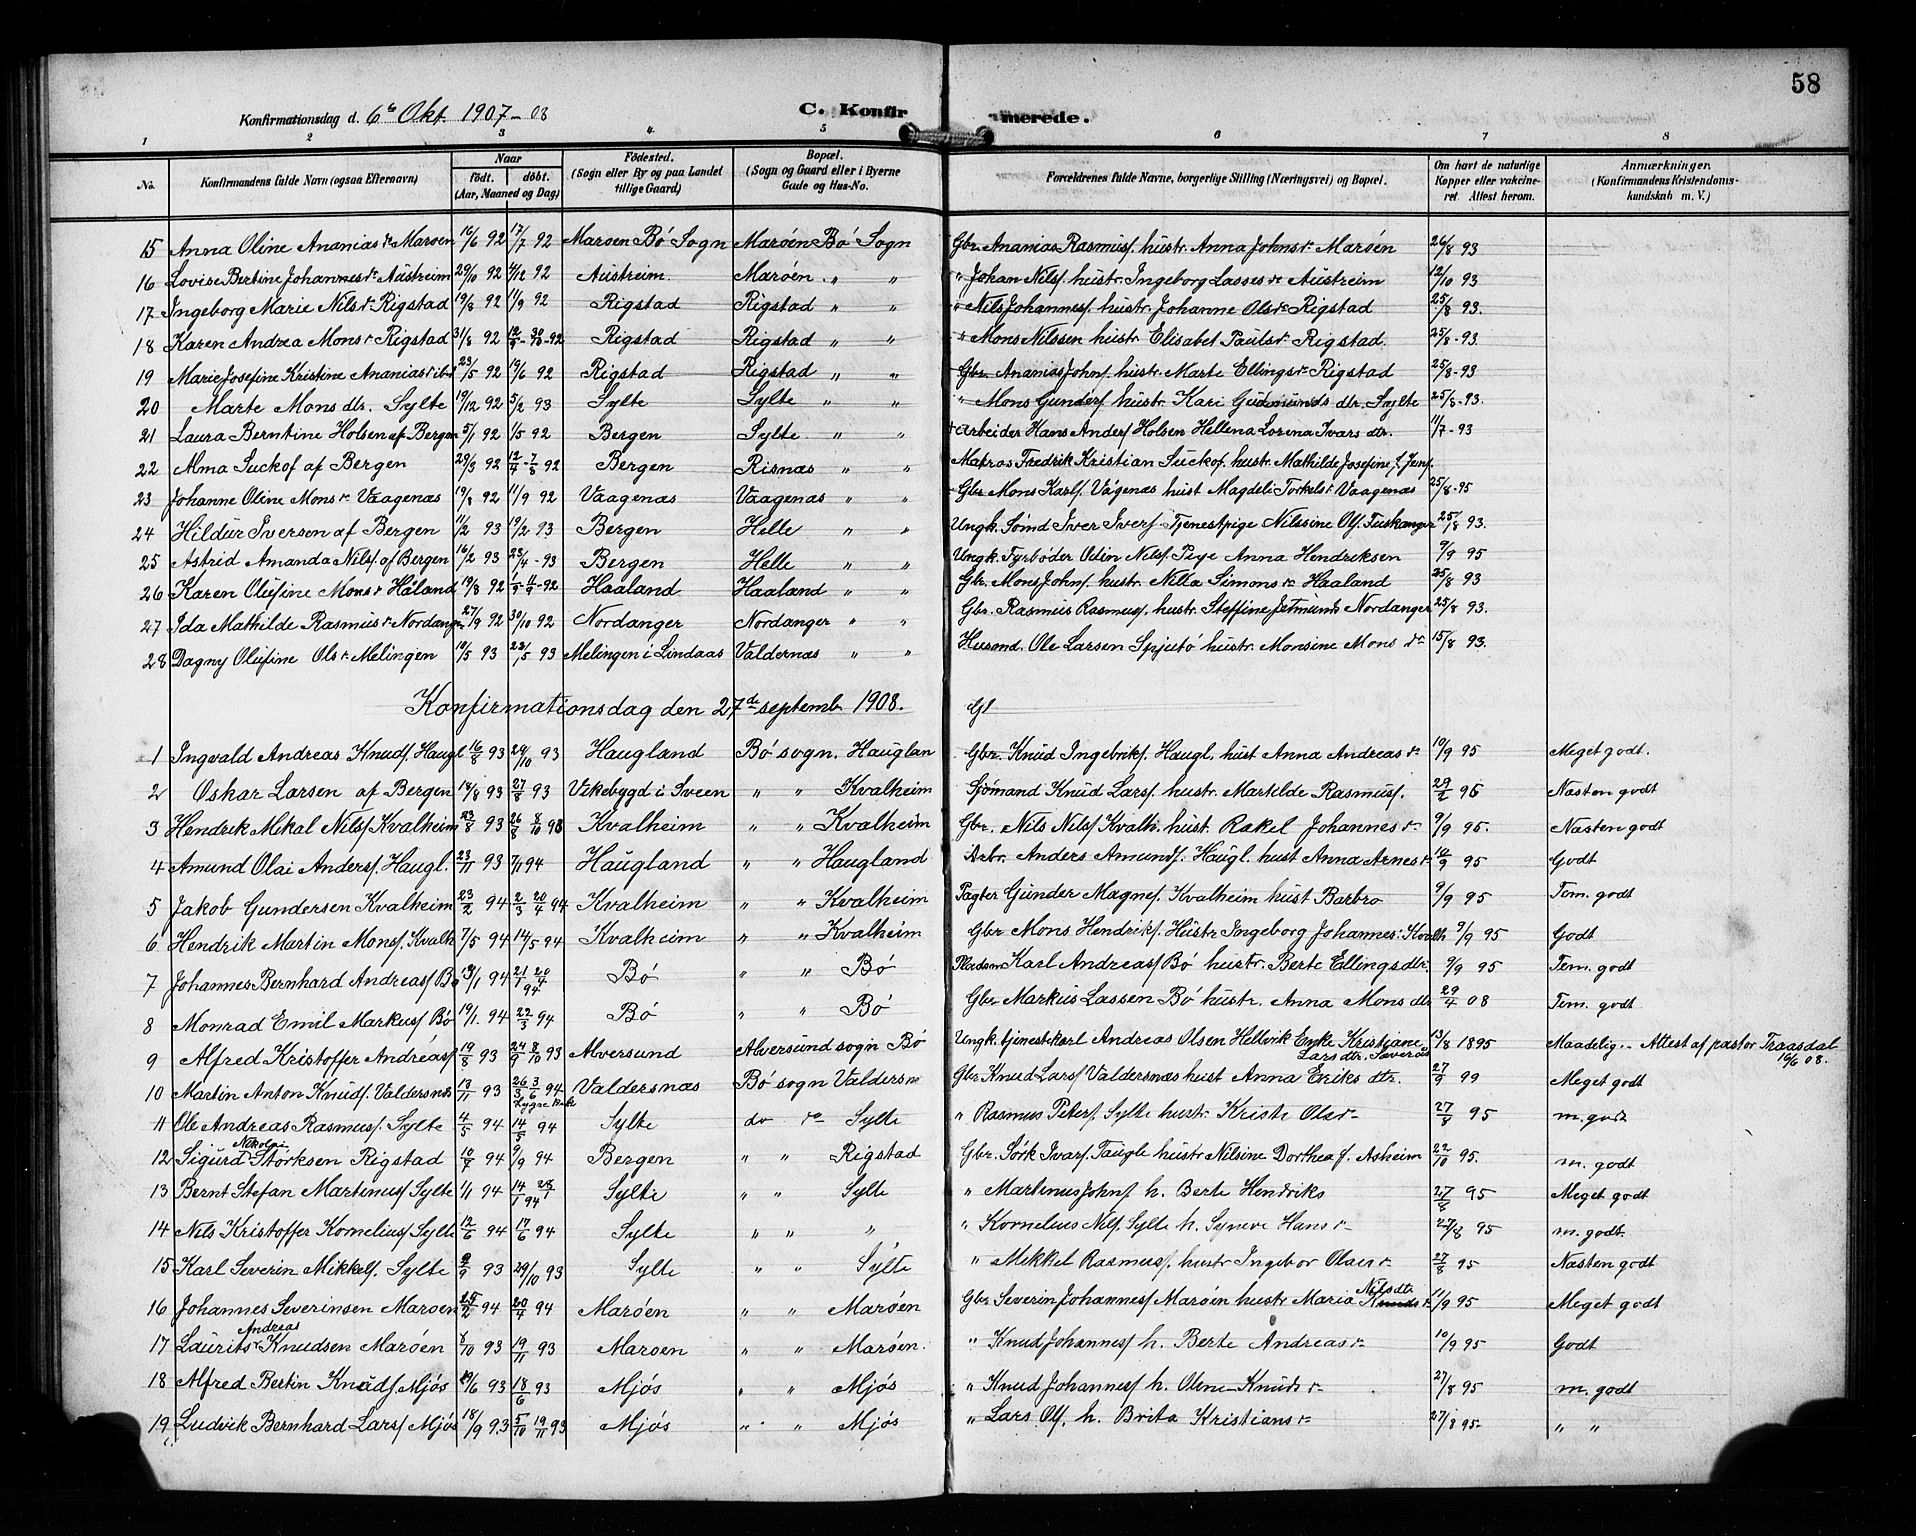 58
Konfirmationsdag d. 6te Okt. 1907-08 C. Konfirmerede.
1 2 3 4 5 6 7 8
No. Konfirmandens fulde Navn (ogsaa Efternavn) Naar Födt. döbt. (Aar, Maaned og Dag) Födested. (Sogn eller By og paa Landet tillige Gaard) Bopæl. (Sogn og Gaard eller i Byerne Gade og Hus-No. Forældrenes fulde Navne, borgerlige Stilling (Næringsvei) og Bopæl. Om havt de naturlige Kopper eller vakcineret Attest herom. Anmærkninger. (Konfirmandens Kristendomskundskab m. V.)
15 Anna Oline Ananias dr Maroen 16/6 92 17/7 92 Maroen Bö Sogn Maröen Bö Sogn Gbr. Ananias Rasmusf. hustr. Anna Johns dr Maröen 26/8 93
16 Lovise Bertine Johannes dr Austreim 29/10 92 92 Austreim. Maröen. " " " Johan Nilsf. hustr. Ingeborg Lasses dr Austreim 12/10 93
17 Ingeborg Marie Nils dr Rigstad 19/8 92 11/9 92 Rigstad Rigstad " " " Nils Johannesf. hustr. Johanne Ols dr Rigstad 25/8 93.
18 Karen Andrea Mons dr Rigstad 31/8 92 92 Rigstad Rigstad " " " Mons Nilssen hustr Elisabet Pauls dr Rigstad. 25/8-93
19 Marie Josefine Kristine Ananias dr ibd 23/5 92 19/6 92 Rigstad Rigstad " " Gbr. Ananias Johnf. hustr. Marte Ellings dr Rigstad 25/8-93
20 Marte Mons dtr. Sylte 19/12 92 5/2 93 Sylte Sylte " " " Mons Gunderf hustr. Kari Gudmunds dtr. Sylte 25/8-93.
21 Laura Berntine Holsen af Bergen 5/1 92 1/5 92 Bergen Sylte " " Arbeider Hans Andersf Holsen Hellena Lorena Ivars dtr. 11/7-93
22 Alma Suckof af Bergen 29/3 92 12/4-7/8 92 Bergen Risnæs " " Matros Fredrik Kristian Suckof. hustr. Mathilde Josefine f. Jensf.
23 Johanne Oline Mons dr Vaagenæs 19/8 92 11/9 92 Vaagenæs Vaagenæs " " Gbr Mons Karlf. Vågenæs hust Magdeli Torkels dr Vaagenæs 25/8-95
24 Hildur Iversen af Bergen 11/2 93 19/2 93 Bergen Helle " " Ungk. Sömd Iver Iverf. Tjenestpige Nilssine Olf. Fuskanger 25/8 93.
25 Astrid Amanda Nilsf. af Bergen 16/2 93 23/4-93 Bergen Helle " " Ungk. Fyrböder Odin Nilsf. Pige Anna Hendriksen 9/9 95
26 Karen Olufine Mons dr Håland 19/8 92 92 Haaland Haaland " " Gbr. Mons Johnf. hustr. Nilla Simons dr Haaland 25/8 93
27 Ida Mathilde Rasmus dr Nordanger 27/9 92 30/10 92 Nordanger Nordanger " " Gbr. Rasmus Rasmusf. hustr. Steffine Jetmunds Nordanger 25/8 93.
28 Dagny Olufine Ols dr Melingen 10/5 93 22/5 93 Melingen i Lindaas Valdernæs " " Husmd. Ole Larsen Spjutö hustr. Monsine Mons dr 15/8 93.
Konfirmationsdag den 27de septemb 1908. Gl
1 Ingvald Andreas Knudf Haugl 16/8 93 29/10 93 Haugland Bö sogn. Hauglan Gbr. Knud Ingebrikf. Haugl. hust Anna Andreas dr 10/9 95 Meget godt.
2 Oskar Larsen af Bergen 14/8 93 27/8 93 Vikebygd i Sveen " " Kvalheim Sjömand Knud Larsf. hustr. Martilde Rasmusf. 29/2 96 Næsten godt
3 Hendrik Mekal Nilsf Kvalheim 23/8 93 26/8 8/10 93 Kvalheim " " Kvalheim Gbr. Nils Nilsf Kvalh. hust. Rakel Johannes dr 9/9 95. Næsten godt
4 Amund Olai Andersf. Haugl. 23/11 93 7/1 94 Haugland " " Haugland Arbr. Anders Amundf. Haugl. hust Anna Arnes dr 10/9 95 Godt
5 Jakob Gundersen Kvalheim 23/2 94 2/3 20/4 94 Kvalheim " " Kvalheim Pagter Gunder Magnef. Kvalheim hust Barbro 9/9 95 Tem. godt
6 Hendrik Martin Monsf. Kvalh 7/5 94 14/5 94 Kvalheim " " Kvalheim Gbr. Mons Hendrikf. Hustr Ingeborg Johannes: Kvalh 9/9 95 Godt
7 Johannes Bernhard Andreasf Bö 13/1 94 21/1 20/4 94 Bö " " Bö Pladsm Karl Andreasf Bö hustr. Berte Ellings dtr. 9/9 95 Tem. godt
8 Monrad Emil Markusf Bö 19/1. 94 22/3 94 Bö " " Bö Gbr. Markus Lassen Bö hustr. Anna Mons dtr 29/4 08 Tem. godt
9 Alfred Kristoffer Andreasf 19/8 93 24/9 8/10 93 Alversund Alversund sogn Bö Ungk. tjenestekarl Andreas Olsen Hellvik Enke Kristiane Lars dtr. Sæveraas 13/8 1895 Maadelig.- Attest af pastor Traasdal 16/6 08.
10 Martin Anton Knudf. Valdersnæs 13/11 93 26/3 3/6 94 Valdersnæs Bö sogn Valdersn Gbr Knud Larsf Valdersnæs hust Anna Eriks dtr. 27/9 99 Meget godt
11 Ole Andreas Rasmusf. Sylte 4/5 94 14/5 94 Sylte do do Sylte " Rasmus Petersf. Sylte hustr Kristi Ols dr 27/8 95 m. godt
12 Sigurd Nikolai Störksen Rigstad 10/7 94 9/9 94 Bergen " " Rigstad Gbr. Störk Ivarf Taugle hustr Nilsine Dorthea f. Asheim 22/10 95. m. godt
13 Bernt Stefan Martinusf Sylte 1/1 94 14/1 28/1 94 Sylte " " Sylte " Martinus Johnf h. Berte Hendriks 27/8 95 Meget godt
14 Nils Kristoffer Korneliusf Sylte 12/6 94 17/6 94 Sylte " " " " Kornelius Nilsf. Sylte h. Syneve Hans dr 27/8 95 m. godt.
15 Karl Severin Mikkelf. Sylte 93 29/10 93 Sylte " " Sylte " Mikkel Rasmusf. hustr Ingebor Olsen dr 27/8 95 Næsten godt
16 Johannes Severinsen Maroen 25/2 94 20/4 94 Maröen " " Maröen Gbr Severin Johannesf Maröen hustr Maria Nils dtr. 11/9 95 Meget godt
17 Laurits Andreas Knudsen Maröen 8/10 93 19/11 93 Maroen " " Maröen. " Knud Johannesf h. Berte Andreas dr 10/9 95 Godt
18 Alfred Bertin Knudf. Mjös 93 18/6 93 Mjös " " Mjös " Knud Johannesf h. Oline Knuds dr 27/8 95 m. godt
19 Ludvik Bernhard Larsf Mjös 18/9 93 5/10 19/11 93 Mjös " " Mjös " Lars Olf. h. Brita Kristians dr 27/8 95- " "